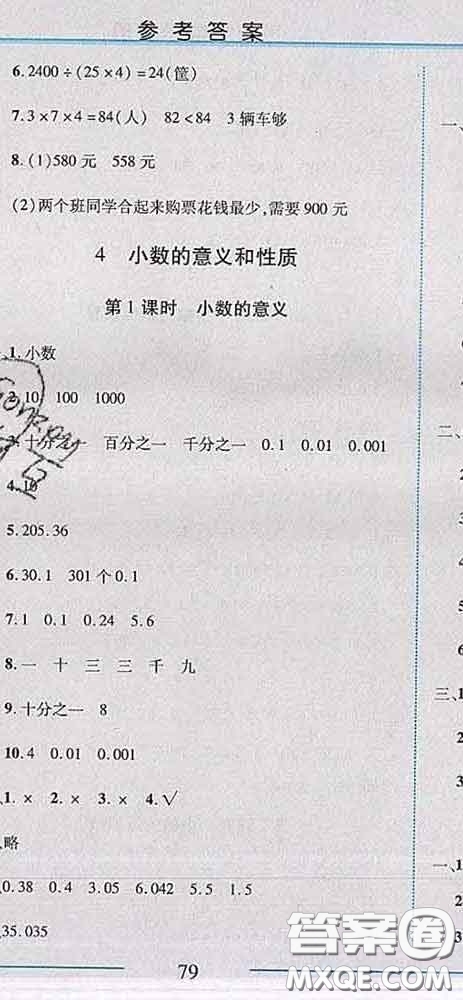 参考答案
6. 2400÷(25×4)=24(筐)
7. 3×7×4=84(人) 82<84 3辆车够
8. (1)580元 558元
(2)两个班同学合起来购票花钱最少,需要900元
4 小数的意义和性质
第1课时 小数的意义
1. 小数
2. 10 100 1000
十分之一 百分之一 千分之一 0.1 0.01 0.001
4. 10
5. 205.36
6. 30.1 301个0.1
7. 1 0.1 0.24 5.6
8. 一 十 三 三 千 九
9. 十分之一 8
10. 4 0.01 0.001
1. × 2. × 3. × 4. √
略
0.38 0.4 3.05 6.042 5.5 1.5
35.035
79
一、
二、
2
3
4
5
6
三、1
2
3
一、1
2
3
答案圈
MXQE.COM